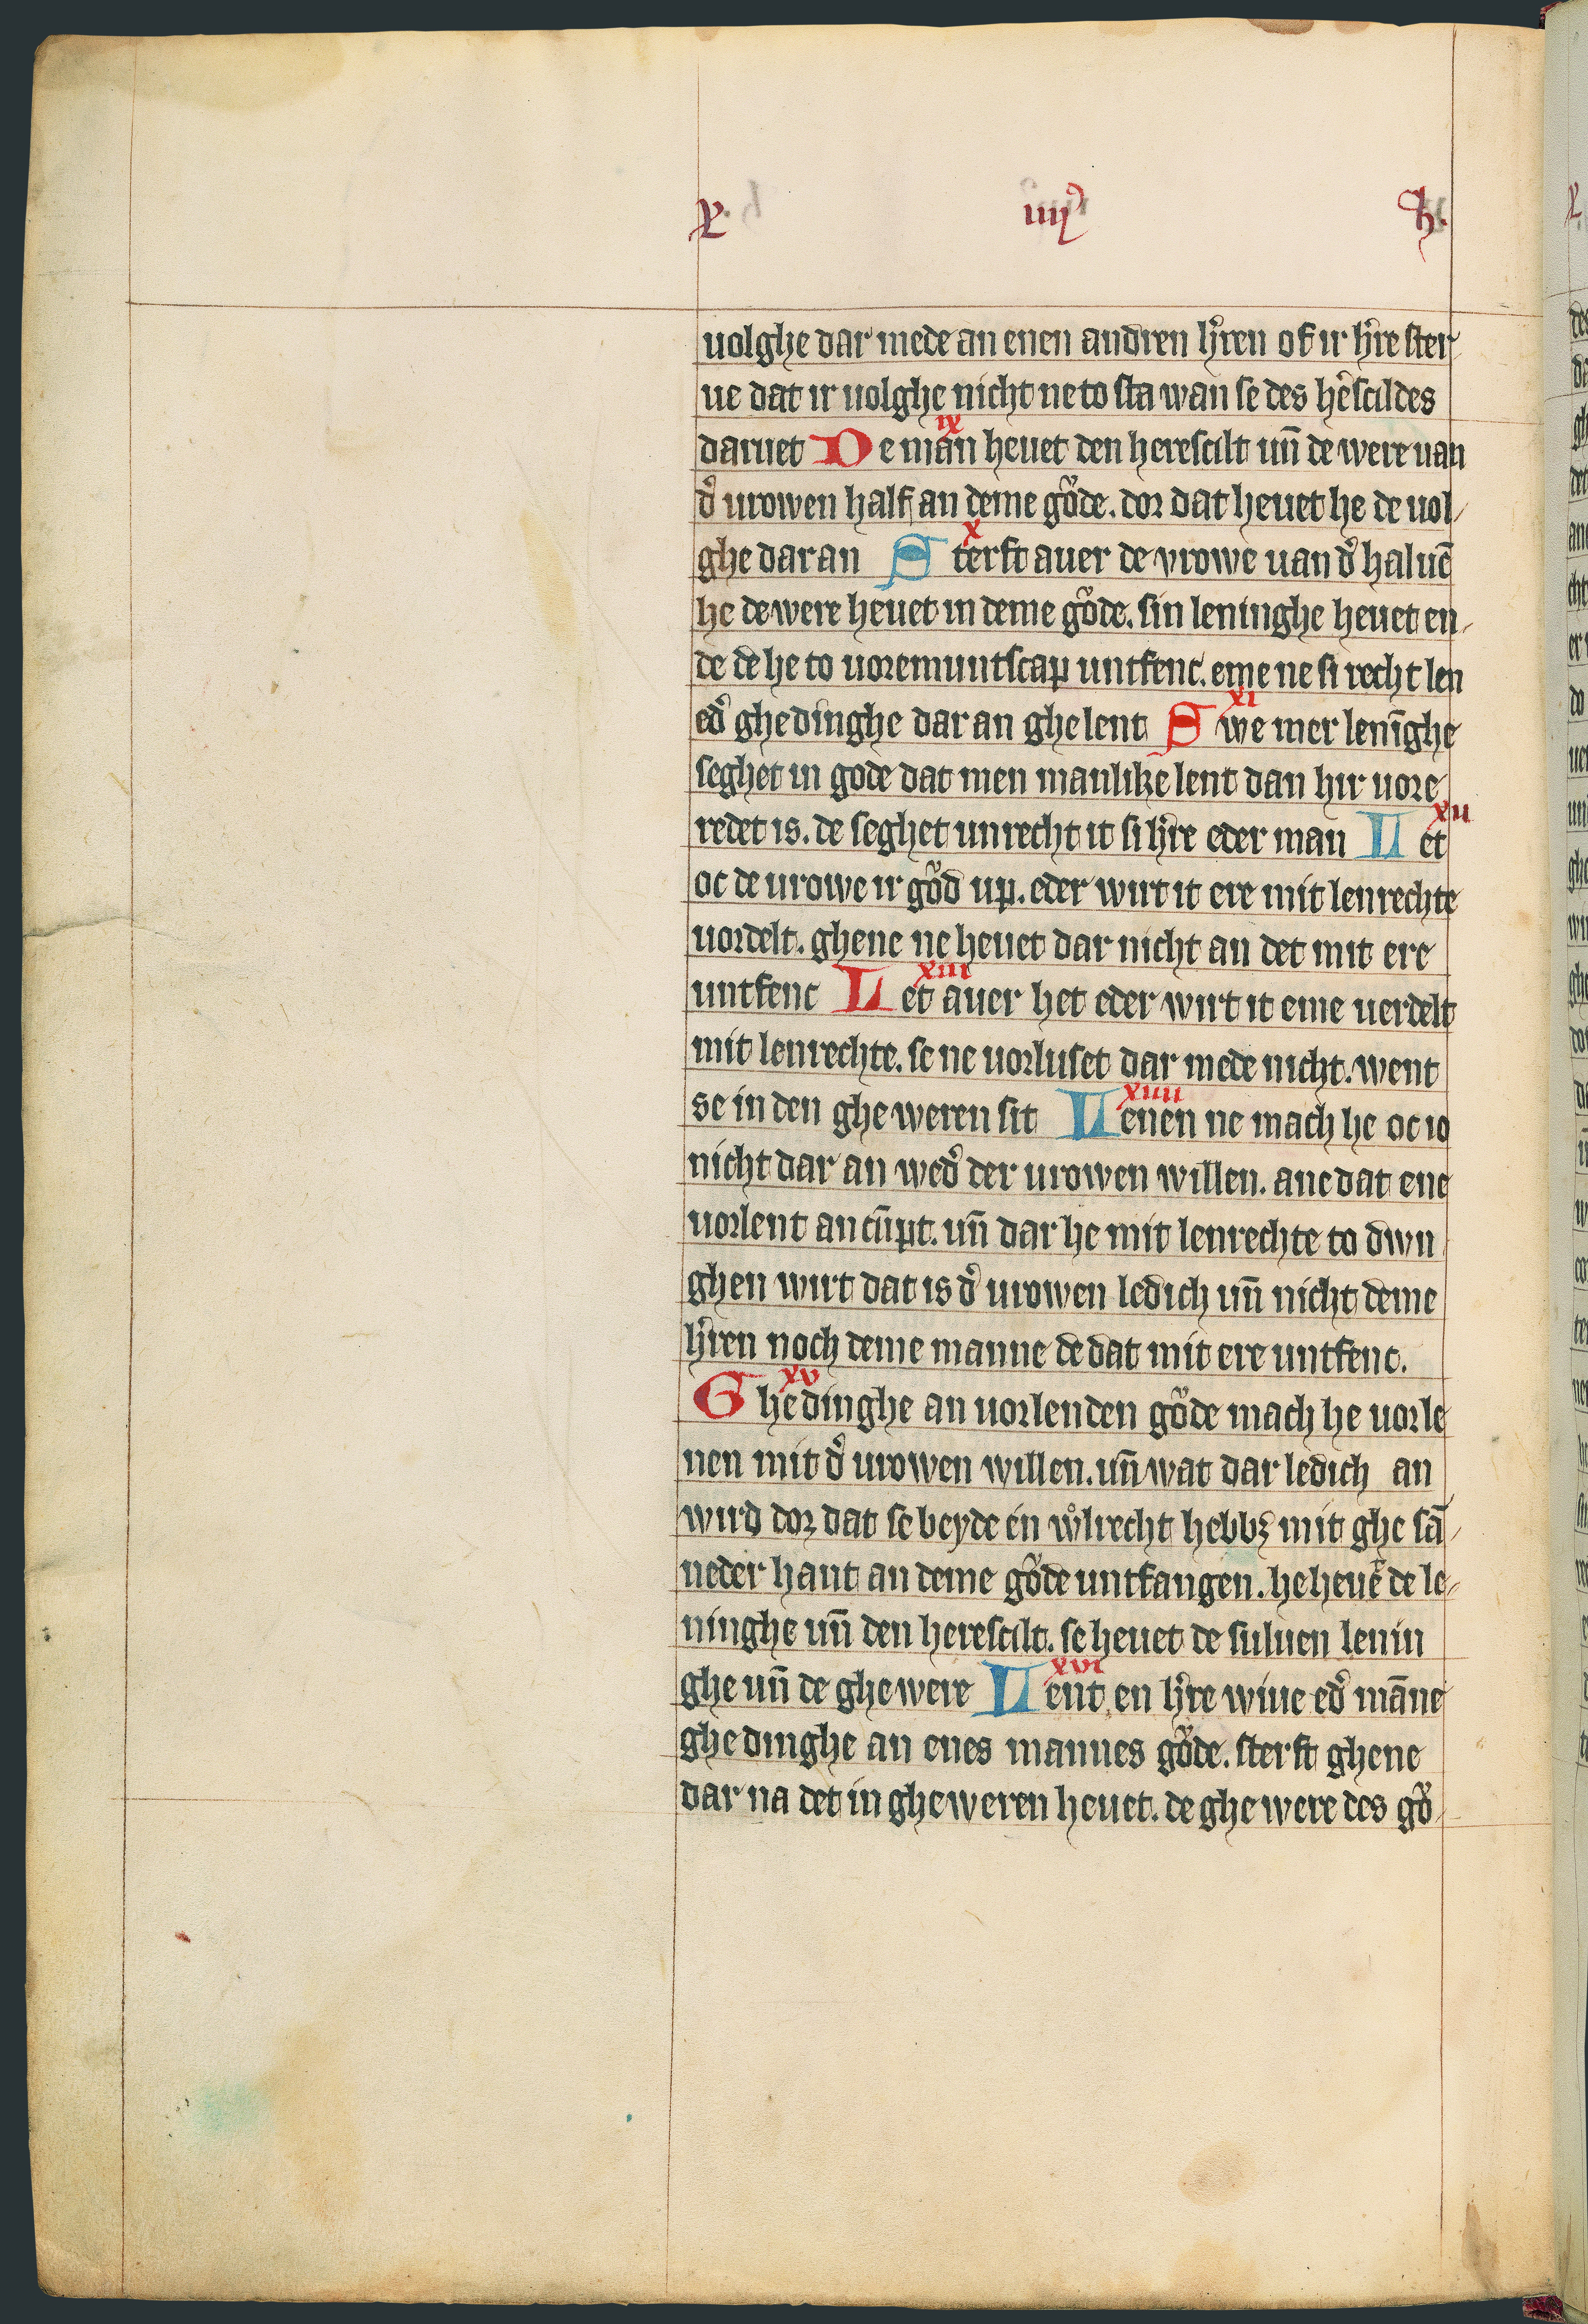 X iiij h.
uolghe dar mede an enen andren h'ren of ir h're ster
ue dat ir uolghe nicht ne to sta wan se des he'scildes
daruet De man heuet den herescilt un̄ de were uan
ix
d' urowen half an deme gůde. dor dat heuet he de uol
ghe dar an Sterft auer de vrowe uan d' haluē
x
he de were heuet in deme gůde. sin leninghe heuet en
de de he to uoremuntscap untfenc. eme ne si recht len
ed' ghedinghe dar an ghelent Swe mer lenīghe
xi
seghet in gode dat men manlike lent dan hir uore
redet is. de seghet unrecht it si h're eder man Let
xii
oc de urowe ir gůd up. eder wirt it ere mit lenrechte
uordelt. ghene ne heuet dar nicht an det mit ere
untfenc Let auer het eder wirt it eme uerdelt
xiii
mit lenrechte. se ne uorluset dar mede nicht. went
se in den gheweren sit Lenen ne mach he oc io
xiiii
nicht dar an wed' der urowen willen. ane dat ene
uorlent an cūpt. un̄ dar he mit lenrechte to dwn
ghen wirt dat is d' urowen ledich un̄ nicht deme
h'ren noch deme manne de dat mit ere untfenc.
xv
Ghedinghe an uorlenden gůde mach he uorle
nen mit d' urowen willen. un̄ wat dar ledich an
wird dor dat se beyde en wlrecht hebbꝫ mit ghe sā
neder hant an deme gůde untfangen. he heuet de le
ninghe un̄ den herescilt. se heuet de suluen lenin
ghe un̄ de ghewere Lent en h're wiue ed' māne
xvi
ghedinghe an enes mannes gůde. sterft ghene
dar na det in gheweren heuet. de ghewere des gů